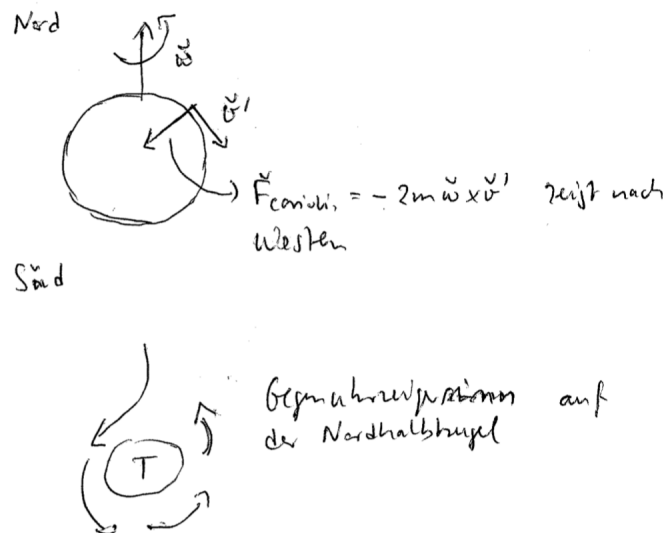 Nord
ω̆
v̆'
F̆coriolis = - 2m ω̆ × v̆' zeigt nach
Westen
Süd
T
Gegenuhrzeigersinn auf
der Nordhalbkugel